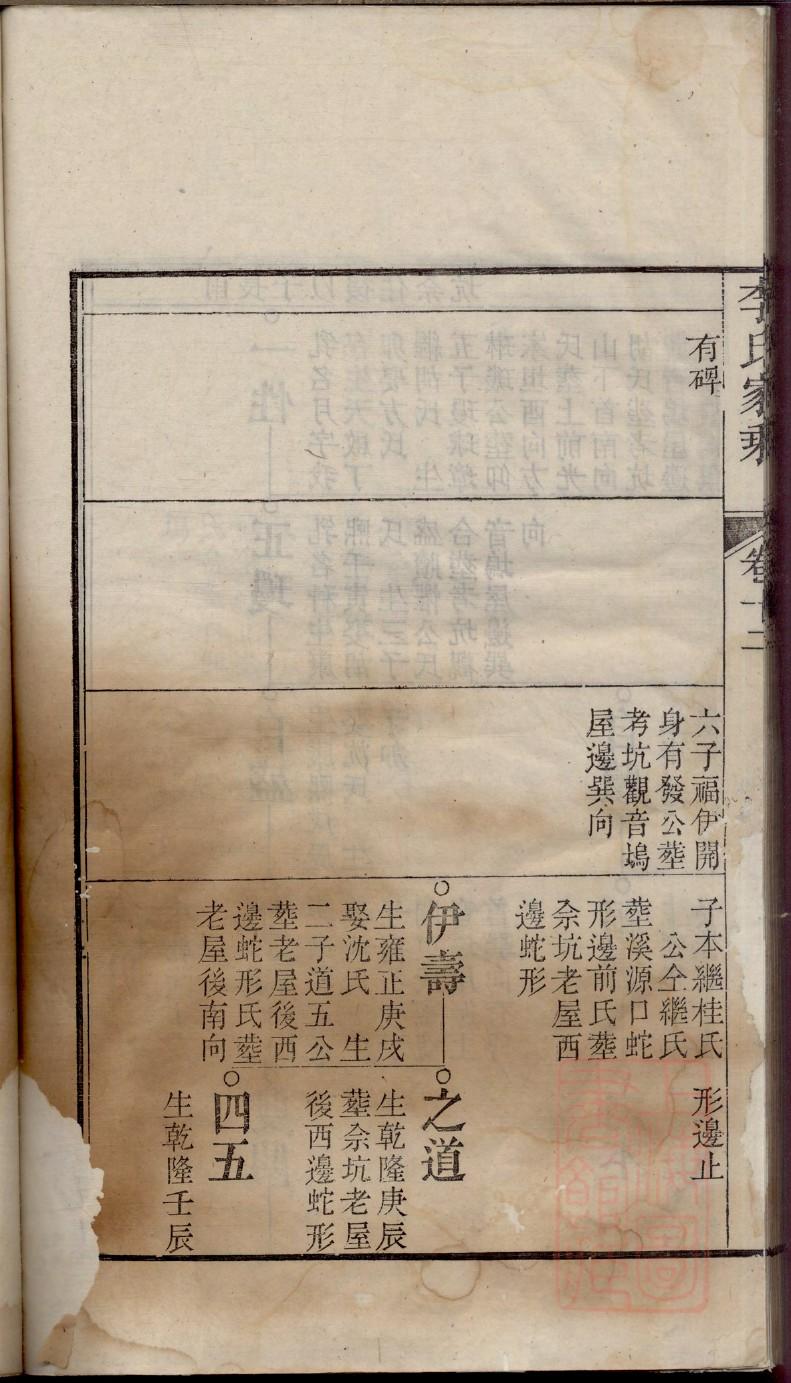 李氏家乘
卷十二
有碑
六子福伊開
身有發公塟
考坑觀音塢
屋邊巽向
子本繼桂氏
公仝繼氏
塟溪源口蛇
形邊前氏塟
佘坑老屋西
邊蛇形
伊壽
生雍正庚戌
娶沈氏 生
二子道五公
塟老屋後西
邊蛇形氏塟
老屋後南向
形邊止
之道
生乾隆庚辰
塟佘坑老屋
後西邊蛇形
四五
生乾隆壬辰